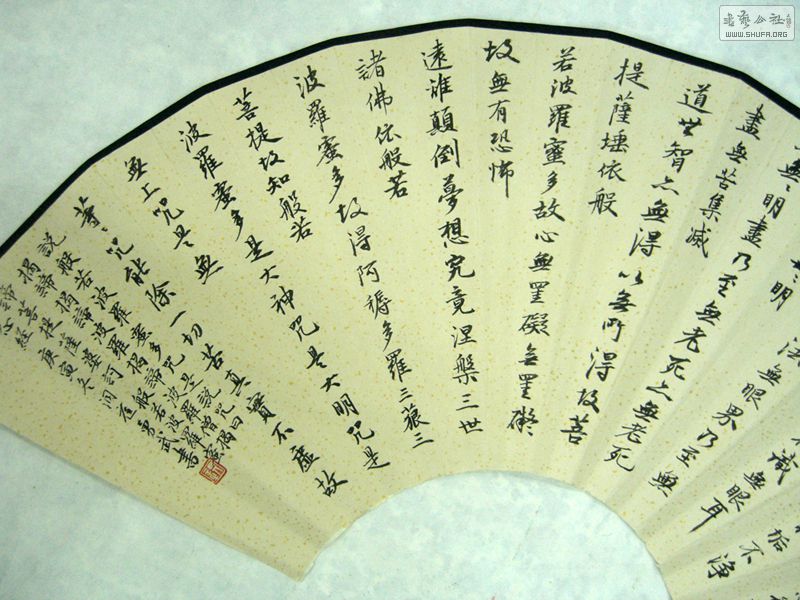 垢不
淨
無眼耳
法無眼界乃至無
無明盡乃至無老死亦無老死
盡無苦集滅
道世智亦無得以無所得故菩
提薩埵依般
若波羅蜜多故心無罣礙無罣礙
故無有恐怖
遠離顛倒夢想究竟涅槃三世
諸佛依般若
波羅蜜多故得阿耨多羅三藐三
菩提故知般若
波羅蜜多是大神咒是大明咒是
無上咒是無
等々咒能除一切苦真實不虛故
說般若波羅蜜多咒是說咒曰
揭諦揭諦波羅揭諦波羅僧揭
諦菩提薩婆訶般若波羅蜜
心經庚寅冬月勇武書
書藝公社
WWW.SHUFA.ORG